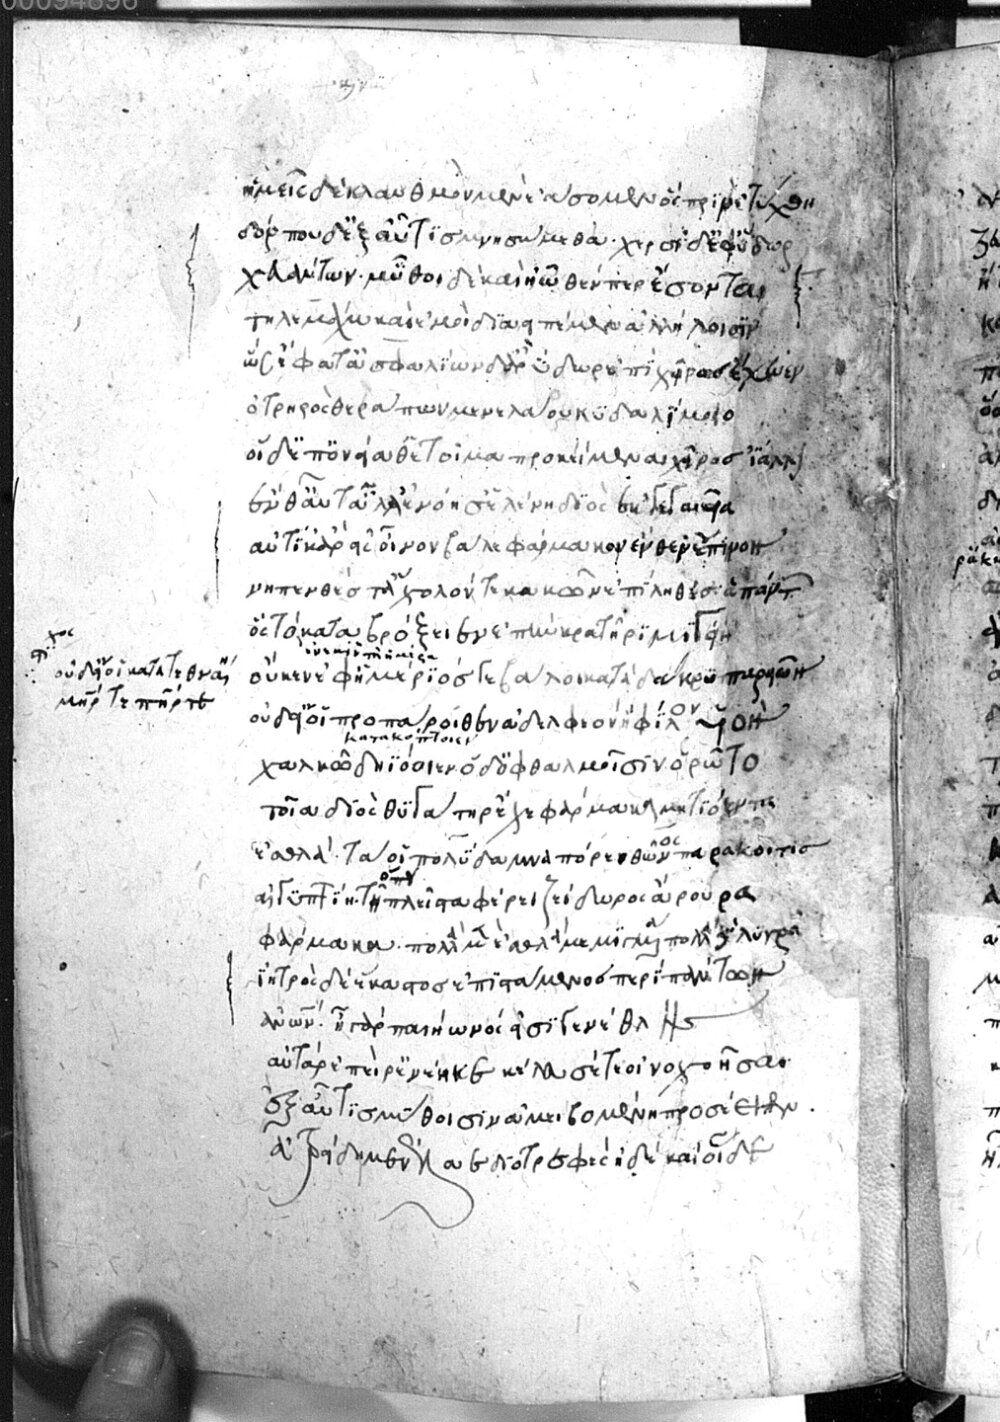 00094896
ἡμεῖς δὲ κλαυθμὸν μὲν ἐάσομεν ὃς πρὶν ἐτύχθη
δόρπου δ' ἐξ αὖτις μνησώμεθα· χερσὶ δ' ἐφ' ὕδωρ
χευάντων· μῦθοι δὲ καὶ ἠῶθέν περ ἔσονται
τηλεμάχω καὶ ἐμοὶ διαειπέμεν ἀλλήλοισιν
ὣς ἔφατ' ἀσφαλίων δ' ἄρ' ὕδωρ ἐπὶ χεῖρας ἔχευεν
ὀτρηρὸς θεράπων μενελάου κυδαλίμοιο
οἱ δ' ἐπ' ὀνείαθ' ἑτοῖμα προκείμενα χεῖρας ἴαλλον
ἔνθ' αὖτ' ἄλλ' ἐνόησ' ἑλένη διὸς ἐκγεγαυῖα
αὐτίκ' ἄρ' εἰς οἶνον βάλε φάρμακον ἔνθεν ἔπινον
νηπενθές τ' ἄχολόν τε κακῶν ἐπίληθες ἁπάντων
ὃς τὸ καταβρόξειεν ἐπὴν κρατῆρι μιγείη
οὔ κεν ἐφημέριός γε βάλοι κατὰ δάκρυ παρειῶν
οὐδ' εἴ οἱ κατατεθναίη
μήτηρ τε πατήρ τε
οὐδ' εἴ οἱ προπάροιθεν ἀδελφεὸν ἢ φίλον υἱόν
κατακόπτοιεν
χαλκῷ δηϊόῳεν ὁ δ' ὀφθαλμοῖσιν ὁρῶτο
τοῖα διὸς θυγάτηρ ἔχε φάρμακα μητιόεντα
ἐσθλά· τά οἱ πολύδαμνα πόρεν θῶνος παράκοιτις
αἰγυπτίη· τῇ πλεῖστα φέρει ζείδωρος ἄρουρα
φάρμακα· πολλὰ μὲν ἐσθλὰ μεμιγμένα πολλὰ δὲ λυγρά
ἰητρὸς δὲ ἕκαστος ἐπιστάμενος περὶ πάντων
ἀνθρώπων· ἦ γὰρ παιήονός εἰσι γενέθλης
αὐτὰρ ἐπεί ῥ' ἐνέηκε κέλευσέ τε οἰνοχοῆσαι
ἐξαῦτις μύθοισιν ἀμειβομένη προσέειπεν.
ἀτρείδη μενέλαε διοτρεφὲς ἠδὲ καὶ οἵδε